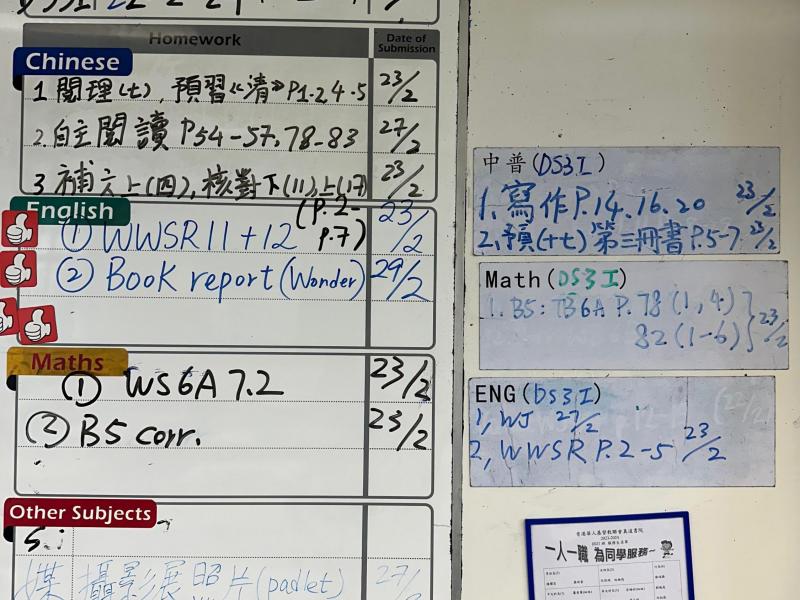 Homework
Date of Submission
Chinese
1 閱理(七), 預習《清》P1-2,4-5 23/2
2. 自主閱讀 P54-57, 78-83 27/2
3 補六上(四), 核對下(11)上(17) 23/2
English
① WWSR 11 + 12 (P.2-P.7) 23/2
② Book report (Wonder) 29/2
Maths
① WS6A 7.2 23/2
② B5 corr. 23/2
Other Subjects
攝影展照片(padlet) 27/2
中普(DS3I)
1. 寫作P.14.16.20 23/2
2. 預(十七) 第三冊書P.5-7 23/2
Math(DS3I)
1. B5: TB6A P.78 (1, 4)
82 (1-6) } 23/2
ENG(DS3I)
1, WJ 27/2
2, WWSR P.2-5 23/2
一人一職 為同學服務~